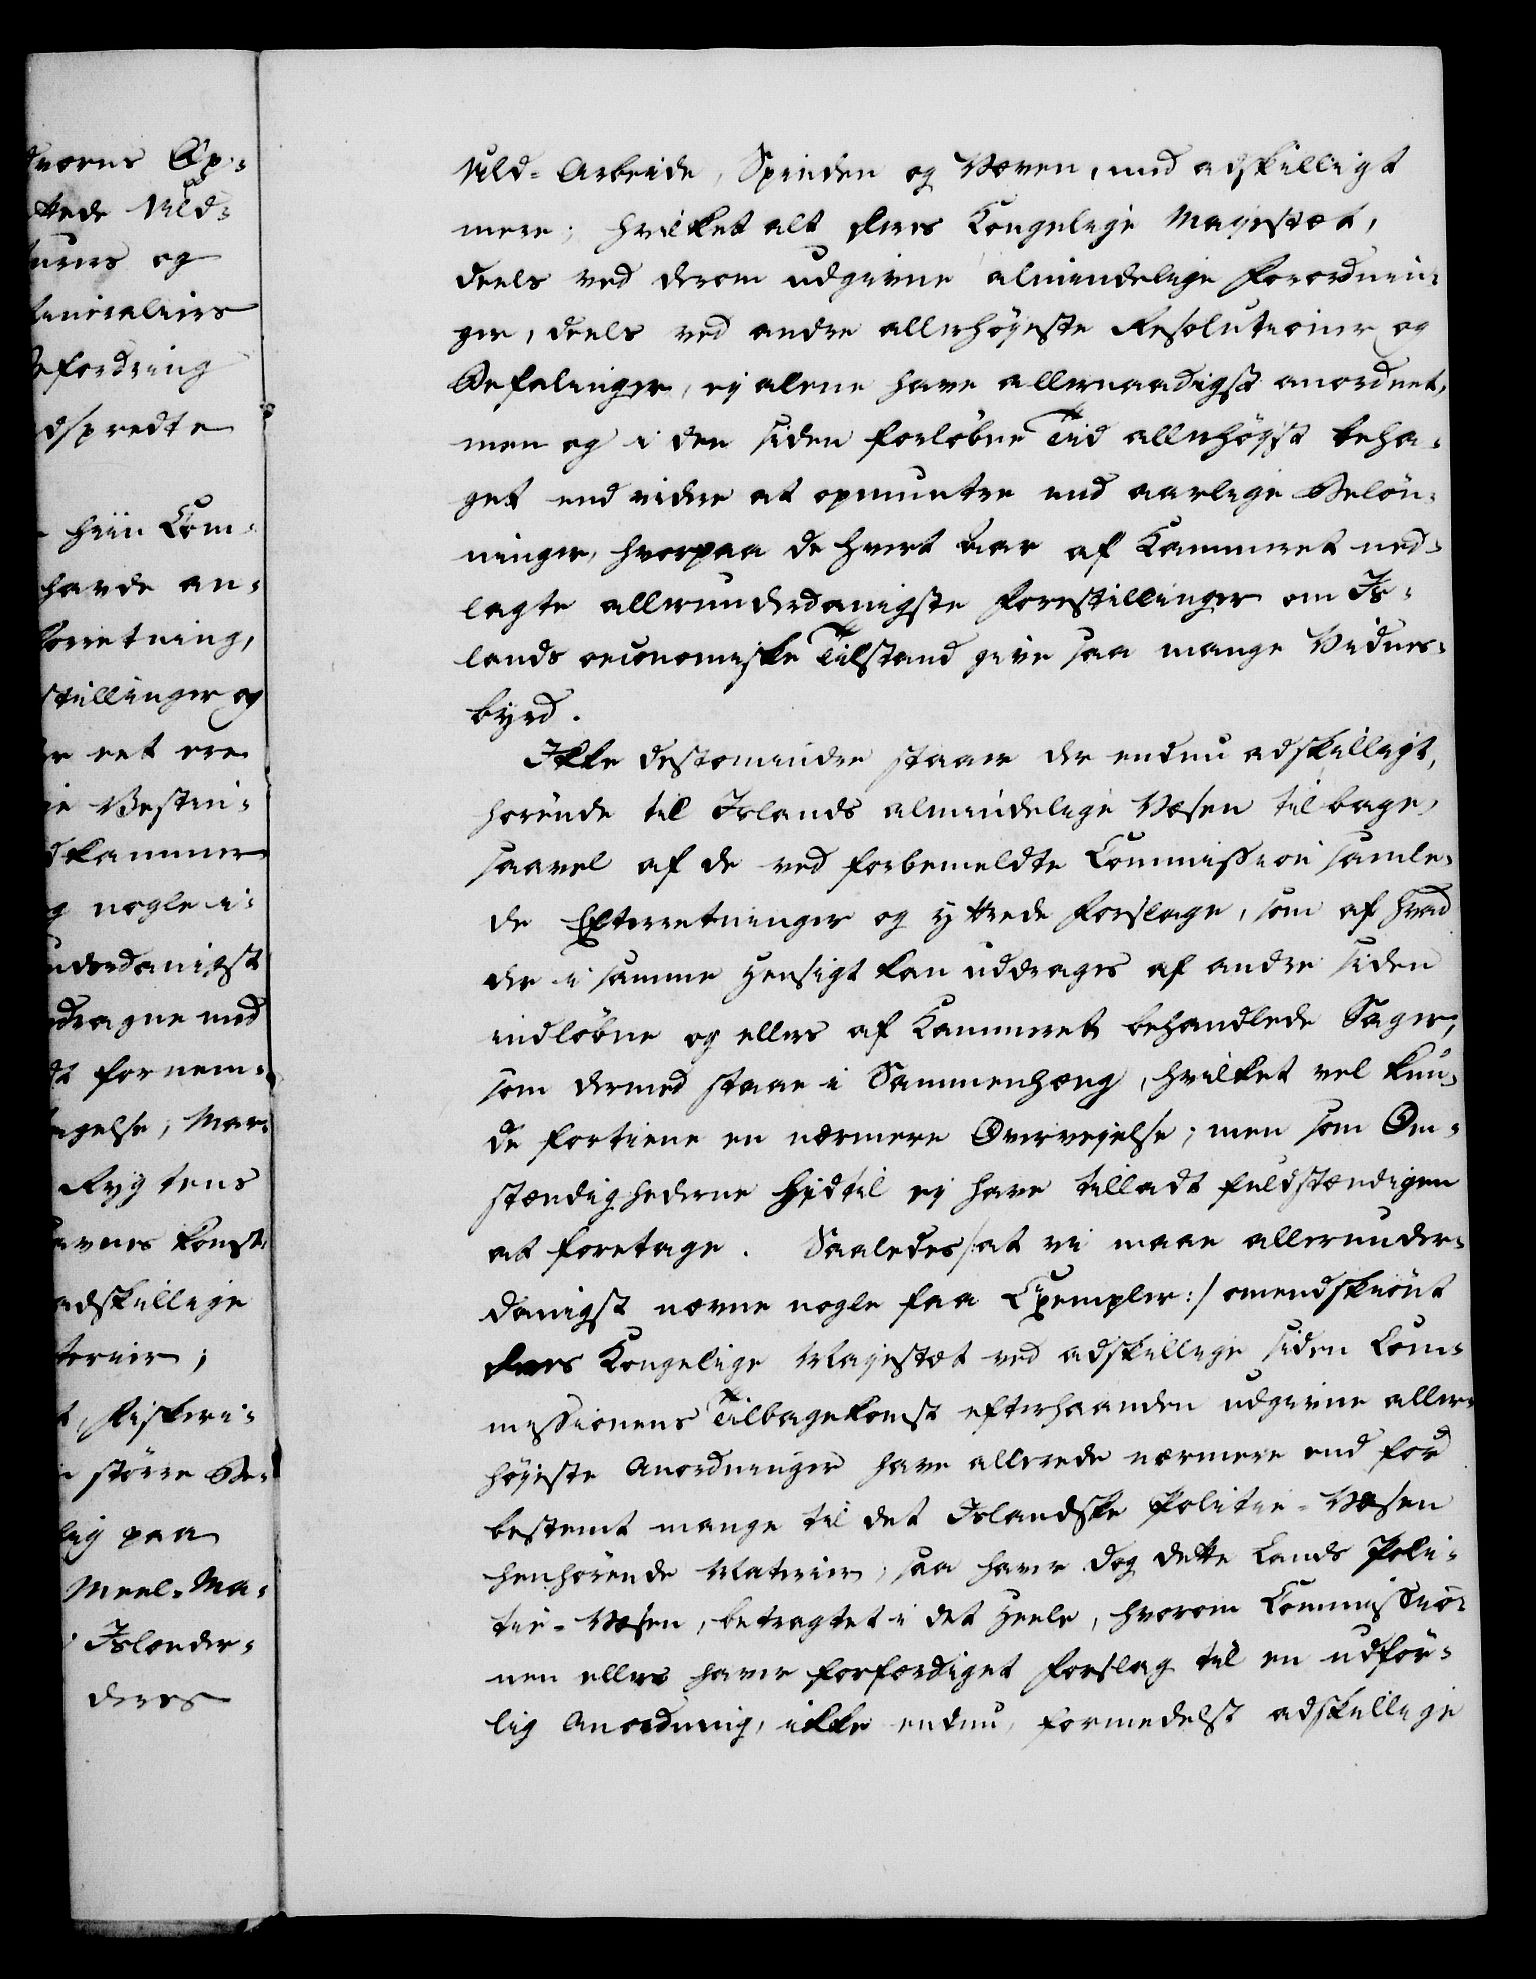 dværns Op-
ttede Uld-
turens og
Mineraliers
Befordring
dspredte
hiin Com-
havde an-
forretning,
stillinger og
er eet ere
ie Bestem-
dkammer
og nogle i-
underdanigst
ddragne med
dt fornem-
tagelse, Mar-
Rygtens
avnes Konst-
adskillige
torier;
t, Fiskeri-
in större Be-
lig paa
Meel-Ma-
i Islænder-
deres
Uld-Arbeide, Spinden og Væven, med adskilligt
mere; hvilket alt Deres Kongelige Majestæt,
deels ved derom udgivne almindelige Forordnin-
ger, deels ved andre allerhöjeste Resolutioner og
Befalinger, ej alene have allernaadigst anordnet,
men og i den siden forløbne Tiid allerhöjst beha-
get end videre at opmuntre med aarlige Belön-
ninger, hvorpaa de hvert Aar af Kammeret ned-
lagte allerunderdanigste Forestillinger om Is-
lands oeconomiske Tilstand give saa mange Vidnes-
byrd.
Ikke destomindre staaer der endnu adskilligt,
hörende til Islands almindelige Væsen tilbage,
saavel af de ved forbemeldte Commission samle-
de Efterretninger og yttrede Forslage, som af hvad
der i samme Hensigt kan uddrages af andre siden
indløbne og ellers af Kammeret behandlede Sager,
som dermed staae i Sammenhæng, hvilket vel kun-
de fortiene en nærmere Overvejelse; men som Om-
stændighederne hidtil ej have tilladt fuldstændigen
at foretage. Saaledes /:at vi maae allerunder-
danigst nævne nogle faa Exempler:/ omendskiönt
Deres Kongelige Majestæt ved adskillige siden Com-
missionens Tilbagekomst efterhaanden udgivne aller-
höjeste Anordninger have allerede nærmere end för
bestemt mange til det Islandske Politie-Væsen
henhörende Materier, saa haver dog dette Lands Poli-
tie-Væsen, betragtet i det Heele, hvorom Commissio-
nen ellers haver forfærdiget Forslag til en udför-
lig Anordning, ikke endnu, formedelst adskillige